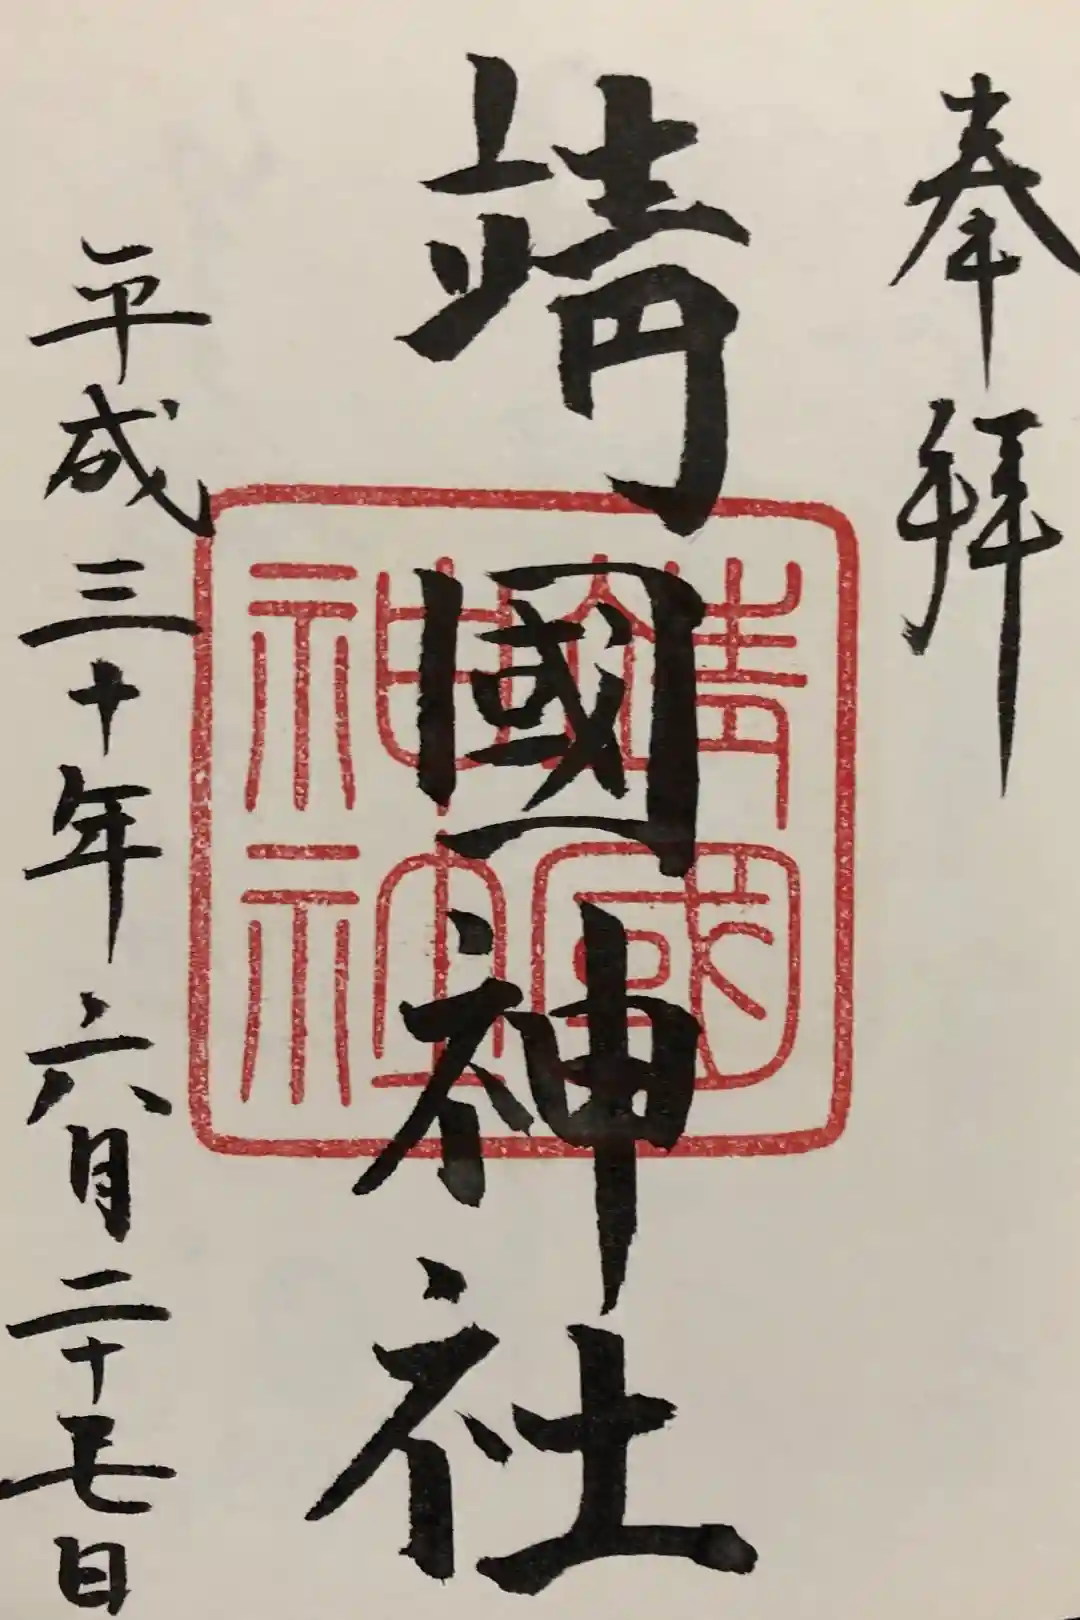 奉拝
靖國神社
靖國神社
平成三十年六月二十七日